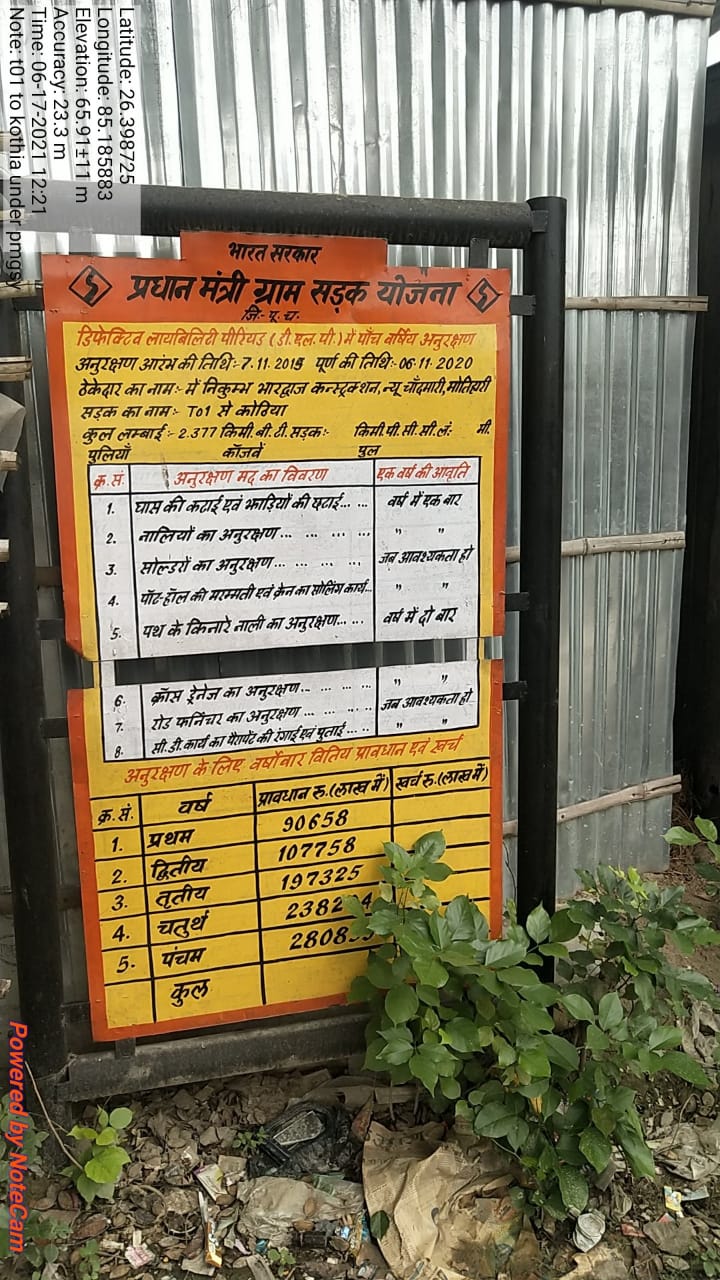 Latitude: 26.398725
Longitude: 85.185883
Elevation: 65.91±11 m
Accuracy: 23.3 m
Time: 06-17-2021 12:21
Note: t01 to kothia under pmgsy
भारत सरकार
प्रधान मंत्री ग्राम सड़क योजना
जि॰- पू. च.
डिफेक्टिव लायबिलिटी पीरियड (डी.एल.पी.) में पाँच वर्षिय अनुरक्षण
अनुरक्षण आरंभ की तिथि:- 7.11.2015 पूर्ण की तिथि:- 06.11.2020
ठेकेदार का नाम:- में निकुम्भ भारद्वाज कन्स्ट्रक्शन, न्यू चाँदमारी, मोतिहारी
सड़क का नाम:- To1 से कोठिया
कुल लम्बाई:- 2.377 किमी. बी.टी. सड़क:- किमी. पी.सी.सी. लं: मी.
पुलियाँ कॉजवें पुल
क्र.सं. अनुरक्षण मद् का विवरण एक वर्ष की आवृति
1. घास की कटाई एवं झाड़ियों की छटाई... ... वर्ष में एक बार
2. नालियों का अनुरक्षण... ... ... ... " "
3. सोल्डरों का अनुरक्षण... ... ... ... जब आवश्यकता हो
4. पॉट-हॉल की मरम्मती एवं क्रेन का सोलिंग कार्य... " "
5. पथ के किनारे नाली का अनुरक्षण... ... वर्ष में दो बार
6. क्रॉस ड्रेनेज का अनुरक्षण... ... ... ... " "
7. रोड फर्निचर का अनुरक्षण ... ... ... जब आवश्यकता हो
8. सी.डी. कार्य का पैरापेट की रंगाई एवं पुताई ... ... " "
अनुरक्षण के लिए वर्षोवार वितिय प्रावधान एवं खर्च
क्र.सं. वर्ष प्रावधान रु.(लाख में) खर्च रु.(लाख में)
1. प्रथम 90658
2. द्वितीय 107758
3. तृतीय 197325
4. चतुर्थ
5. पंचम
कुल
Powered by NoteCam